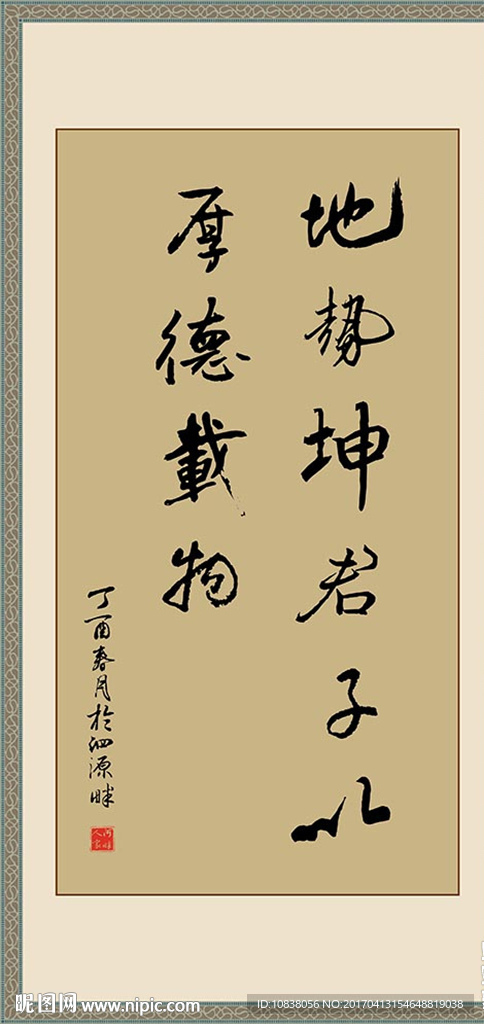 地勢坤君子以
厚德載物
丁酉春月於泗源畔
昵图网 www.nipic.com
ID:10838056 NO:20170413154648819038